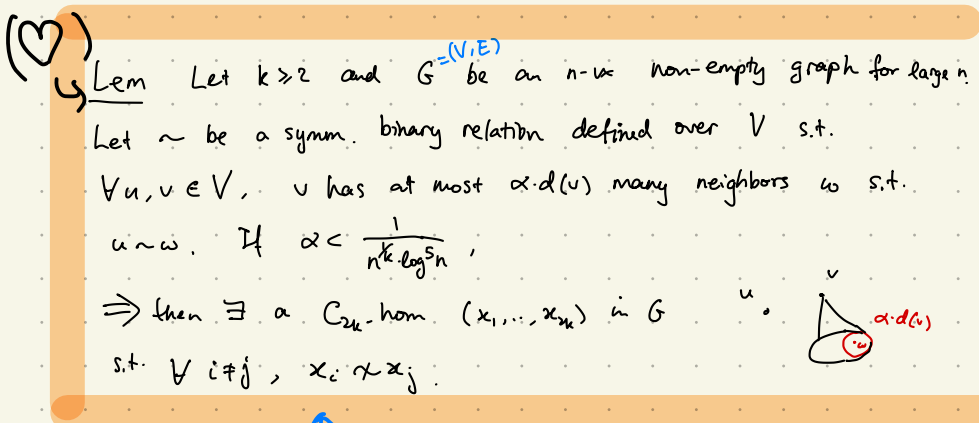 (♡)
=(V,E)
Lem Let k ≥ 2 and G be an n-vx non-empty graph for large n.
Let ~ be a symm. binary relation defined over V s.t.
∀u,v ∈ V, v has at most α·d(v) many neighbors w s.t.
u~w. If α < 1/(n^{1/k}·log^5 n),
⇒ then ∃ a C_{2k}-hom (x_1,..,x_{2k}) in G
s.t. ∀ i≠j, x_i ≁ x_j.
u
v
w
α·d(v)